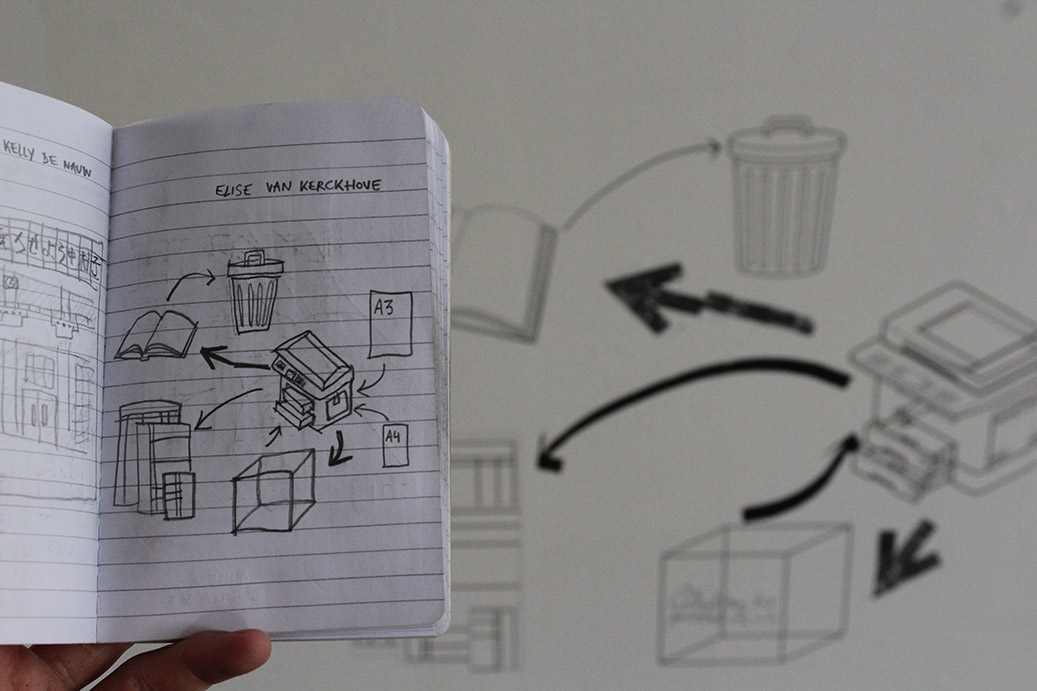 KELLY DE NAUW
ELISE VAN KERCKHOVE
A3
A4